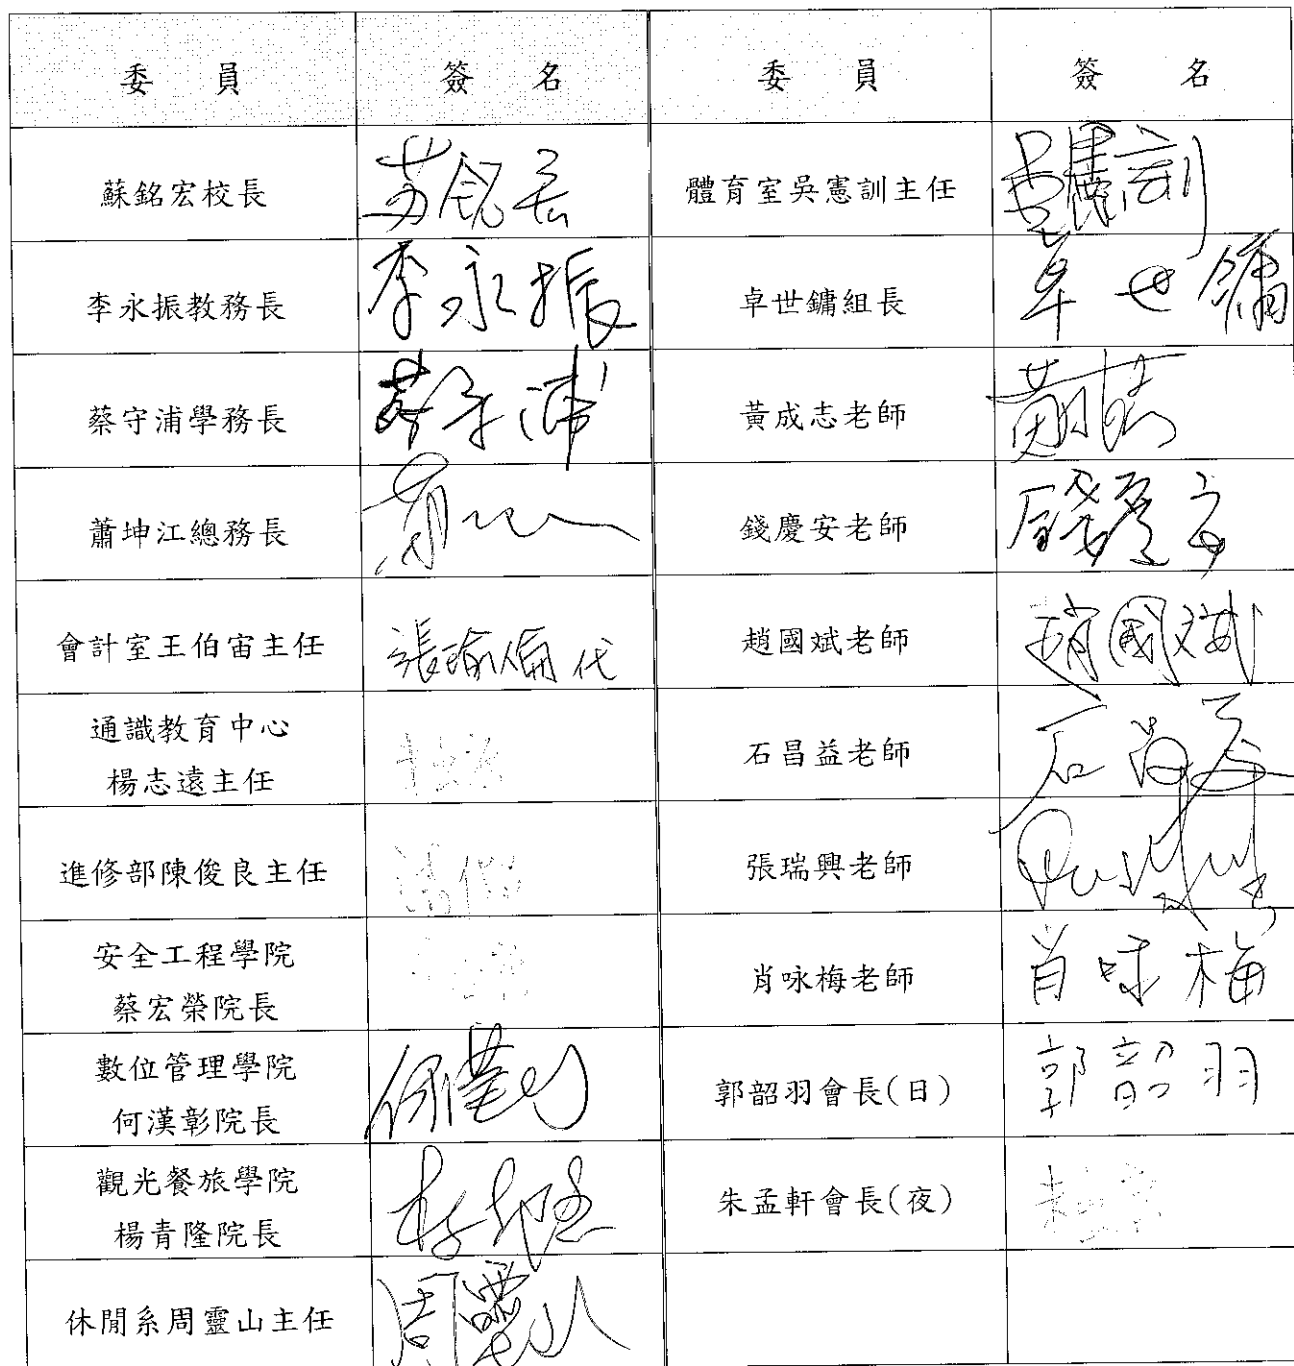 委員 簽名 委員 簽名
蘇銘宏校長 苏銘宏 體育室吳憲訓主任 吳憲訓
李永振教務長 李永振 卓世鏞組長 卓世鏞
蔡守浦學務長 蔡守浦 黃成志老師
蕭坤江總務長 錢慶安老師 錢慶安
會計室王伯宙主任 張瑜倫代 趙國斌老師 趙國斌
通識教育中心
楊志遠主任 石昌益老師 石昌益
進修部陳俊良主任 張瑞興老師
安全工程學院
蔡宏榮院長 肖咏梅老師 肖咏梅
數位管理學院
何漢彰院長 郭韶羽會長(日) 郭韶羽
觀光餐旅學院
楊青隆院長 朱孟軒會長(夜)
休閒系周靈山主任 周靈山